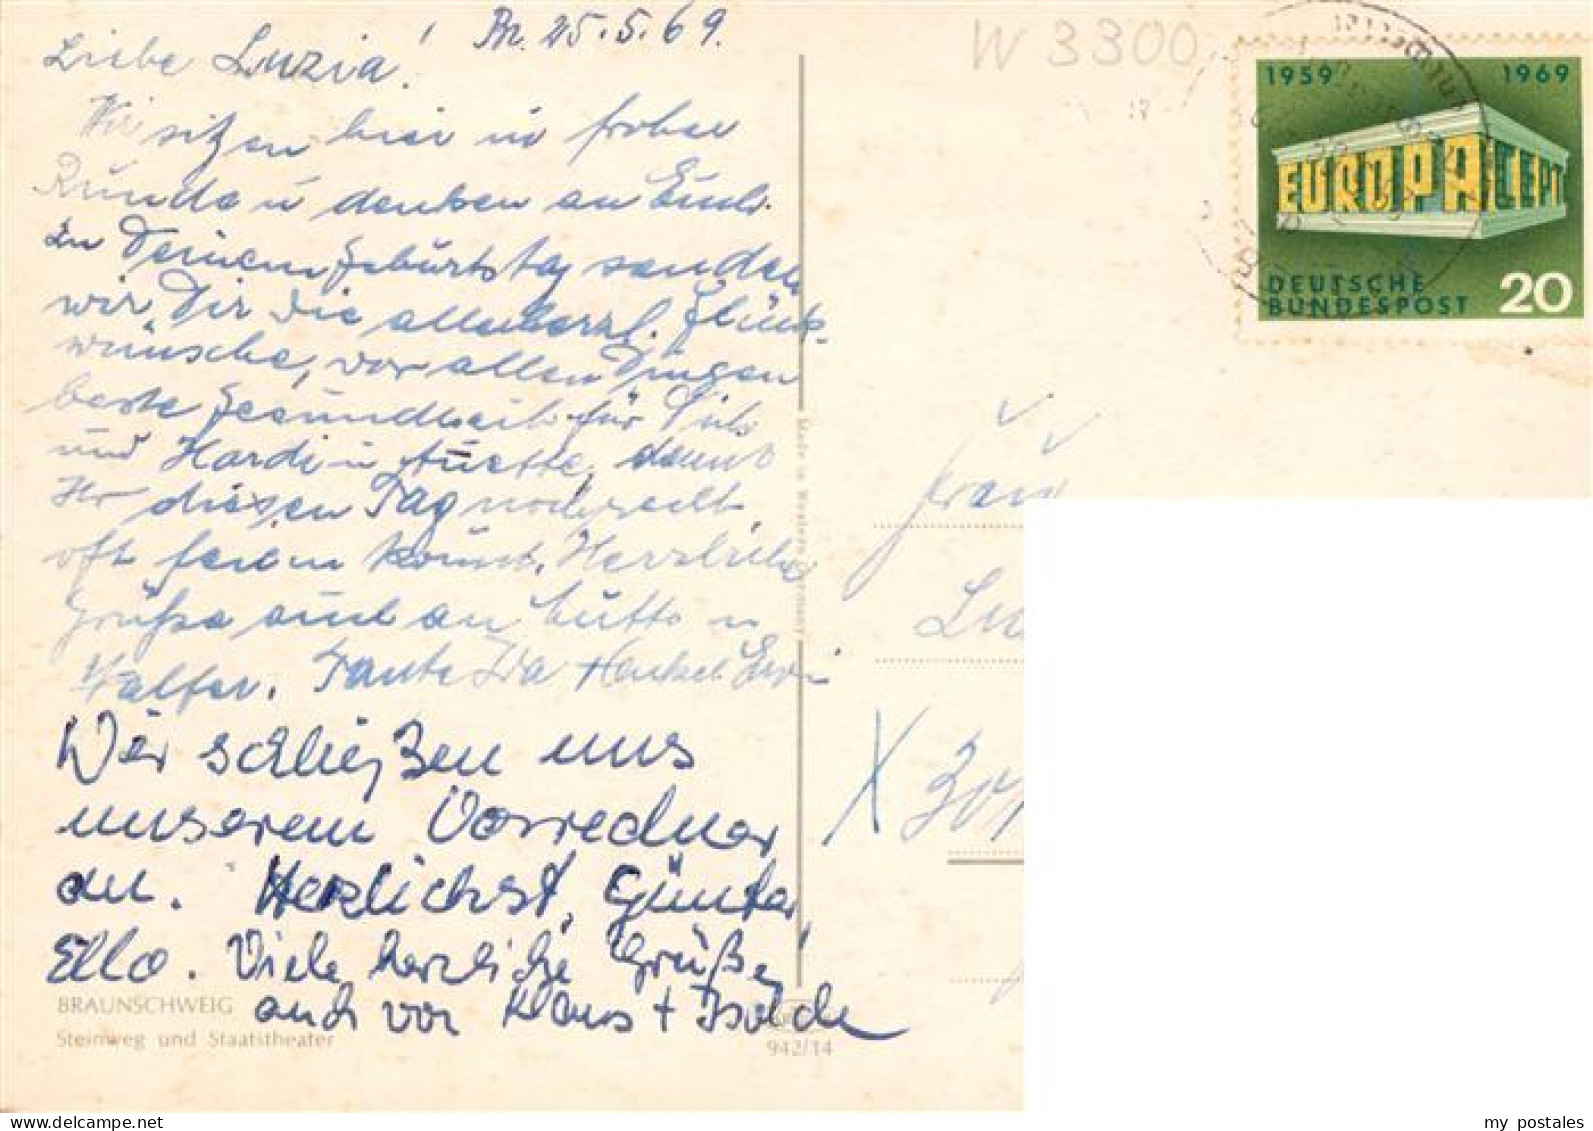 Br. 25.5.69.
Liebe Luzia!
Wir sitzen hier in froher
Runde u denken an Euch.
Zu Deinem Geburtstag senden
wir Dir die allerherzl. Glück-
wünsche, vor allen Dingen
beste Gesundheit für Dich
und Hardi u Anette, damit
Ihr diesen Tag noch recht
oft feiern könnt. Herzliche
Grüße auch an Mutti u
Walter. Tante Ida Erwin
Wir schließen uns
unserem Vorredner
an. Herzlichst, Günter,
Ello. Viele herzliche Grüße,
auch von Klaus + Isolde
BRAUNSCHWEIG
Steinweg und Staatstheater
942/14
Made in Western Germany
W 3300
1959 1969
EUROPA CEPT
DEUTSCHE
BUNDESPOST 20
Frau
Lu
X 30
my postales